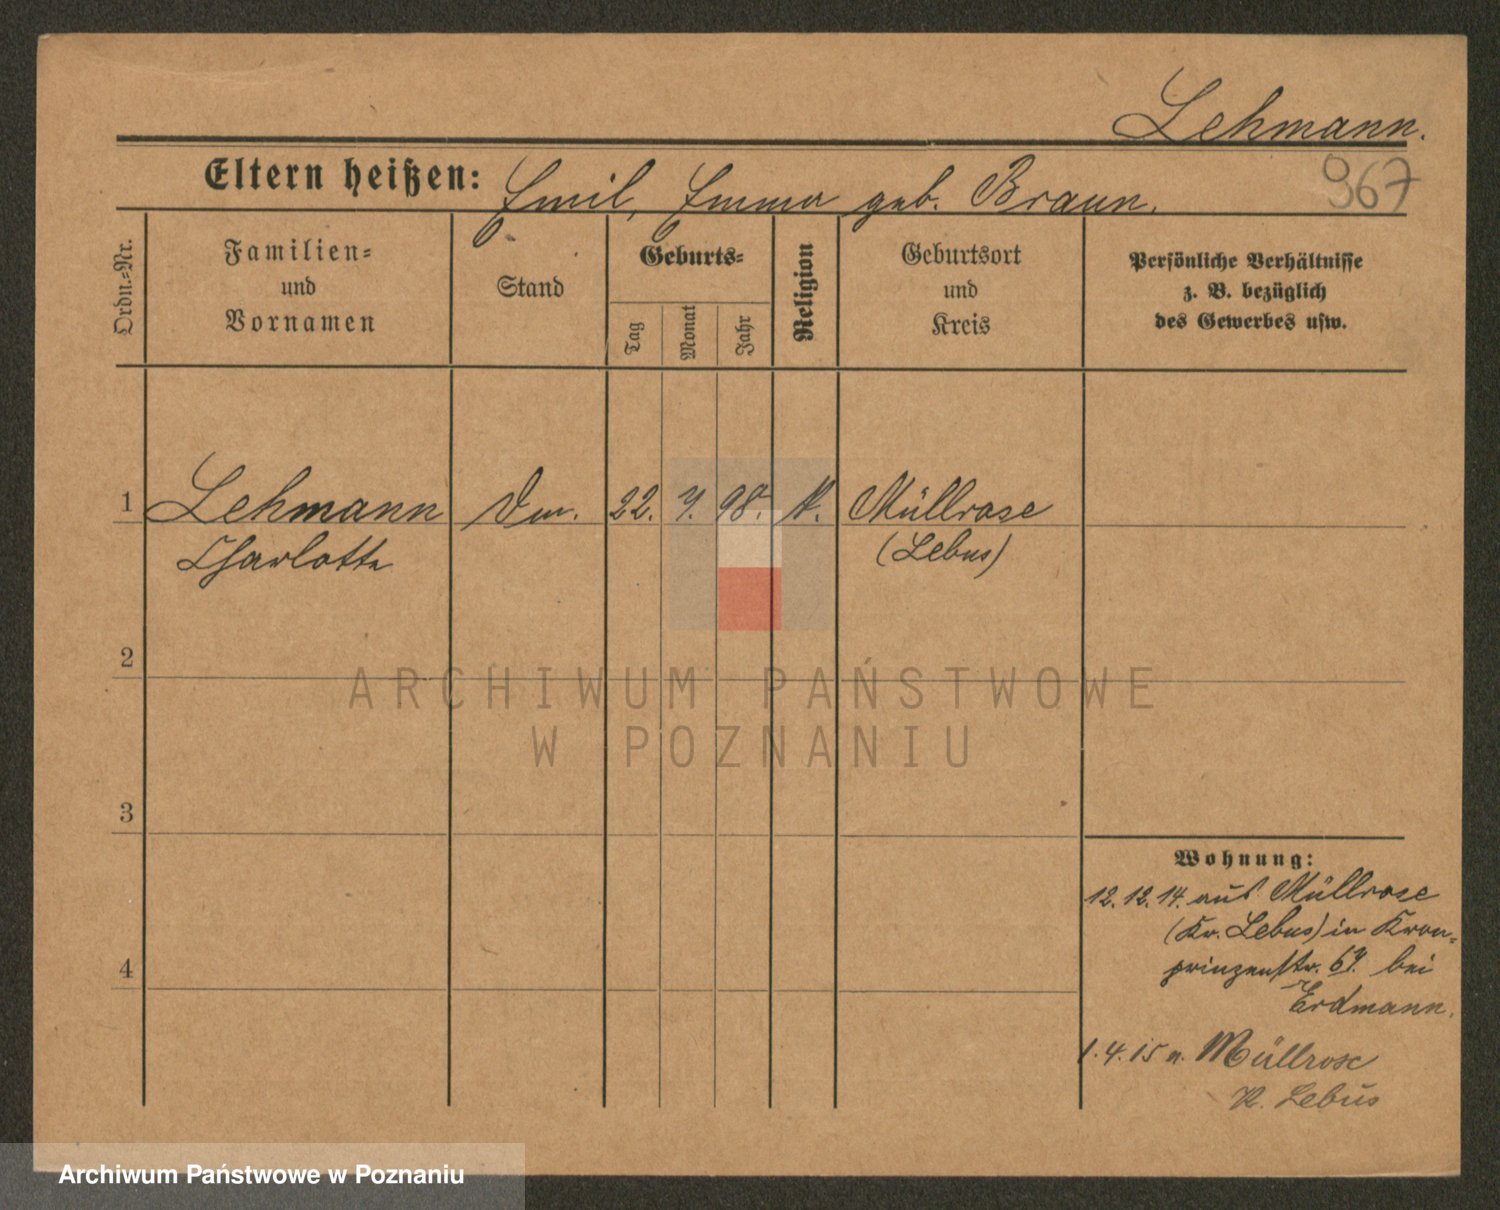 Lehmann.
Eltern heißen: Emil, Emma geb. Braun.
967
Ordn.=Nr.
Familien=
und
Vornamen
Stand
Geburts=
Tag
Monat
Jahr
Religion
Geburtsort
und
Kreis
Persönliche Verhältnisse
z. B. bezüglich
des Gewerbes usw.
1 Lehmann 22. 7. 98. Müllrose
Charlotte (Lebus)
2
3
4
Wohnung:
12.12.14. aus Müllrose
(Kr. Lebus) in Kron=
prinzenstr. 67. bei
Erdmann.
1.4.15 n. Müllrose
K. Lebus
ARCHIWUM PAŃSTWOWE
W POZNANIU
Archiwum Państwowe w Poznaniu